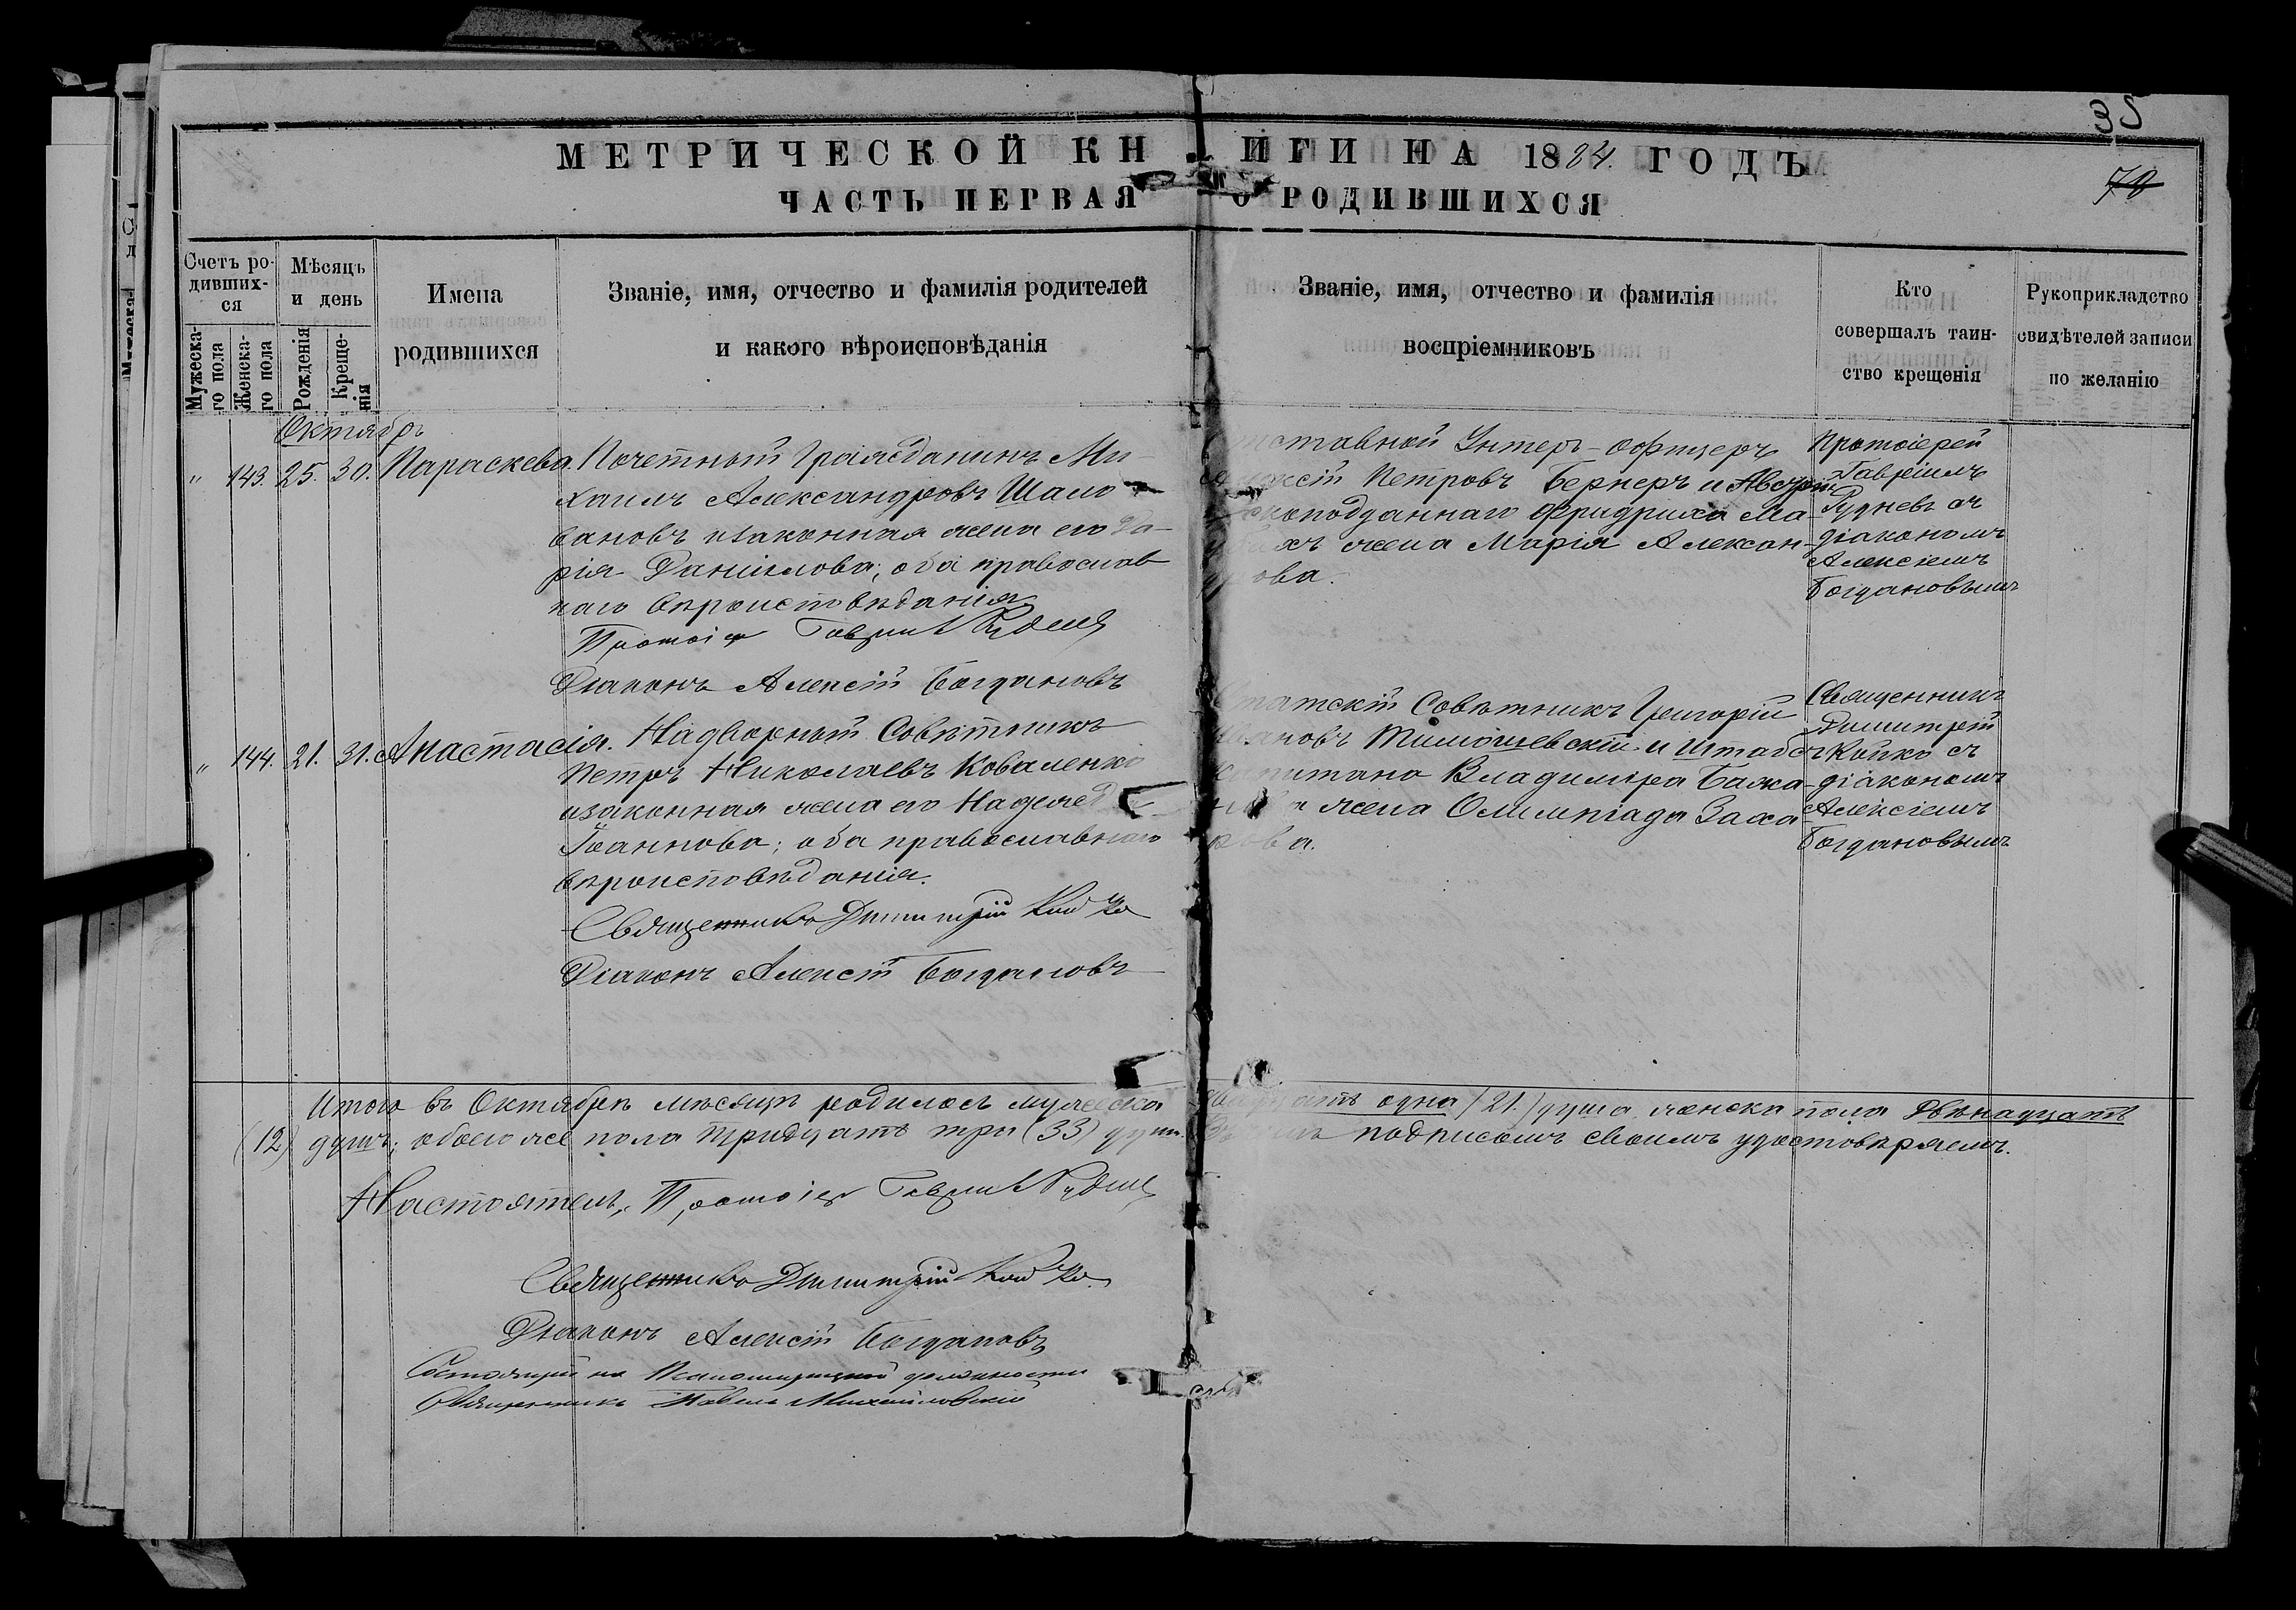 35
МЕТРИЧЕСКОЙ КНИГИ НА 1884. ГОДЪ
70
ЧАСТЬ ПЕРВАЯ О РОДИВШИХСЯ
Счетъ ро-
дивших-
ся
Мужеска-
го пола
Женска-
го пола
Мѣсяцъ
и день
Рожденія
Креще-
нія
Имена
родившихся
Званіе, имя, отчество и фамилія родителей
и какого вѣроисповѣданія
Званіе, имя, отчество и фамилія
воспріемниковъ
Кто
совершалъ таин-
ство крещенія
Рукоприкладство
свидѣтелей записи
по желанію
Октябрь
" 143. 25. 30. Параскева.
Почетный Гражданинъ Ми-
хаилъ Александровъ Шапо
вановъ и законная жена его Да-
рія Даніилова; оба православ
наго вѣроисповѣданія
Протоіер Гавріил Руднев
Діаконъ Алексій Богдановъ
тставной Унтеръ-офицеръ
ексій Петровъ Бернеръ и Австрій
скоподданнаго Фридриха Ма-
жена Марія Алексан-
ова.
Протоіерей
Гавріилъ
Рудневъ съ
діакономъ
Алексіемъ
Богдановымъ
" 144. 21. 31. Анастасія.
Надворный Совѣтникъ
Петръ Николаевъ Коваленко
и законная жена его Надежда
Іоаннова; оба православнаго
вѣроисповѣданія.
Священникъ Димитрій Койко
Діаконъ Алексій Богдановъ
Статскій Совѣтникъ Григорій
Ивановъ Тимошевскій и Штабсъ
Капитана Владиміра Бажа-
жена Олимпіада Заха
рова.
Священникъ
Димитрій
Койко съ
діакономъ
Алексіемъ
Богдановымъ
Итого въ Октябрѣ мѣсяцѣ родилось мужеска двадцать одна (21.) душа, женска пола двѣнадцать
(12) душъ; обоего же пола тридцать три (33) души. подписомъ своимъ удостовѣряемъ.
Настоятель, Протоіер Гавріил Руднев
Священникъ Димитрій Койко
Діаконъ Алексій Богдановъ
Состоящій на Псаломщицкой должности
Священникъ Павелъ Михайловскій